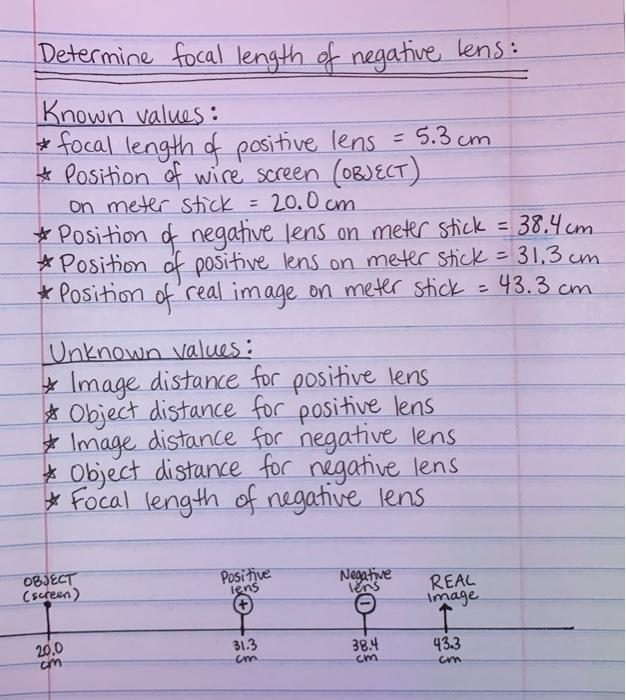 Determine focal length of negative lens:
Known values:
* focal length of positive lens = 5.3 cm
* Position of wire screen (OBJECT)
on meter stick = 20.0 cm
* Position of negative lens on meter stick = 38.4 cm
* Position of positive lens on meter stick = 31.3 cm
* Position of real image on meter stick = 43.3 cm
Unknown values:
* Image distance for positive lens
* Object distance for positive lens
* Image distance for negative lens
* Object distance for negative lens
* Focal length of negative lens
OBJECT
(screen)
Positive
lens
+
Negative
lens
−
REAL
image
20.0
cm
31.3
cm
38.4
cm
43.3
cm